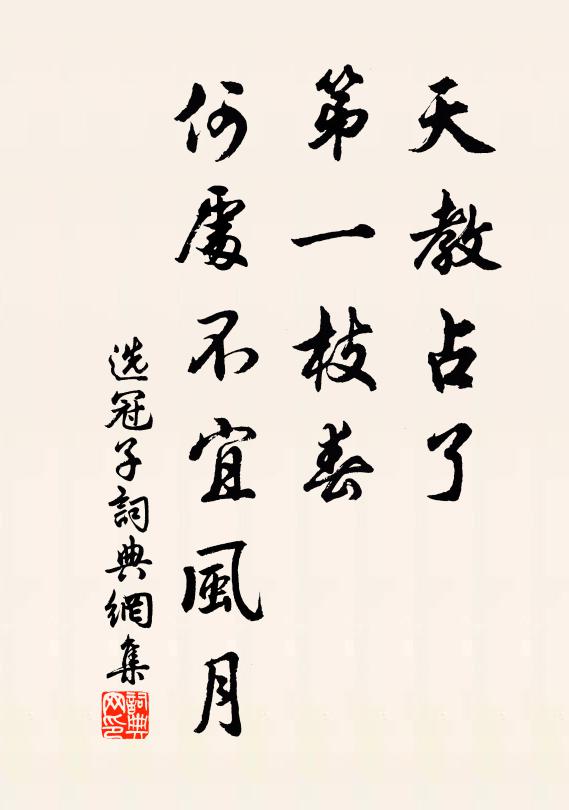 天教占了
第一枝春
何處不宜風月
选冠子詞典網集
詞典网印